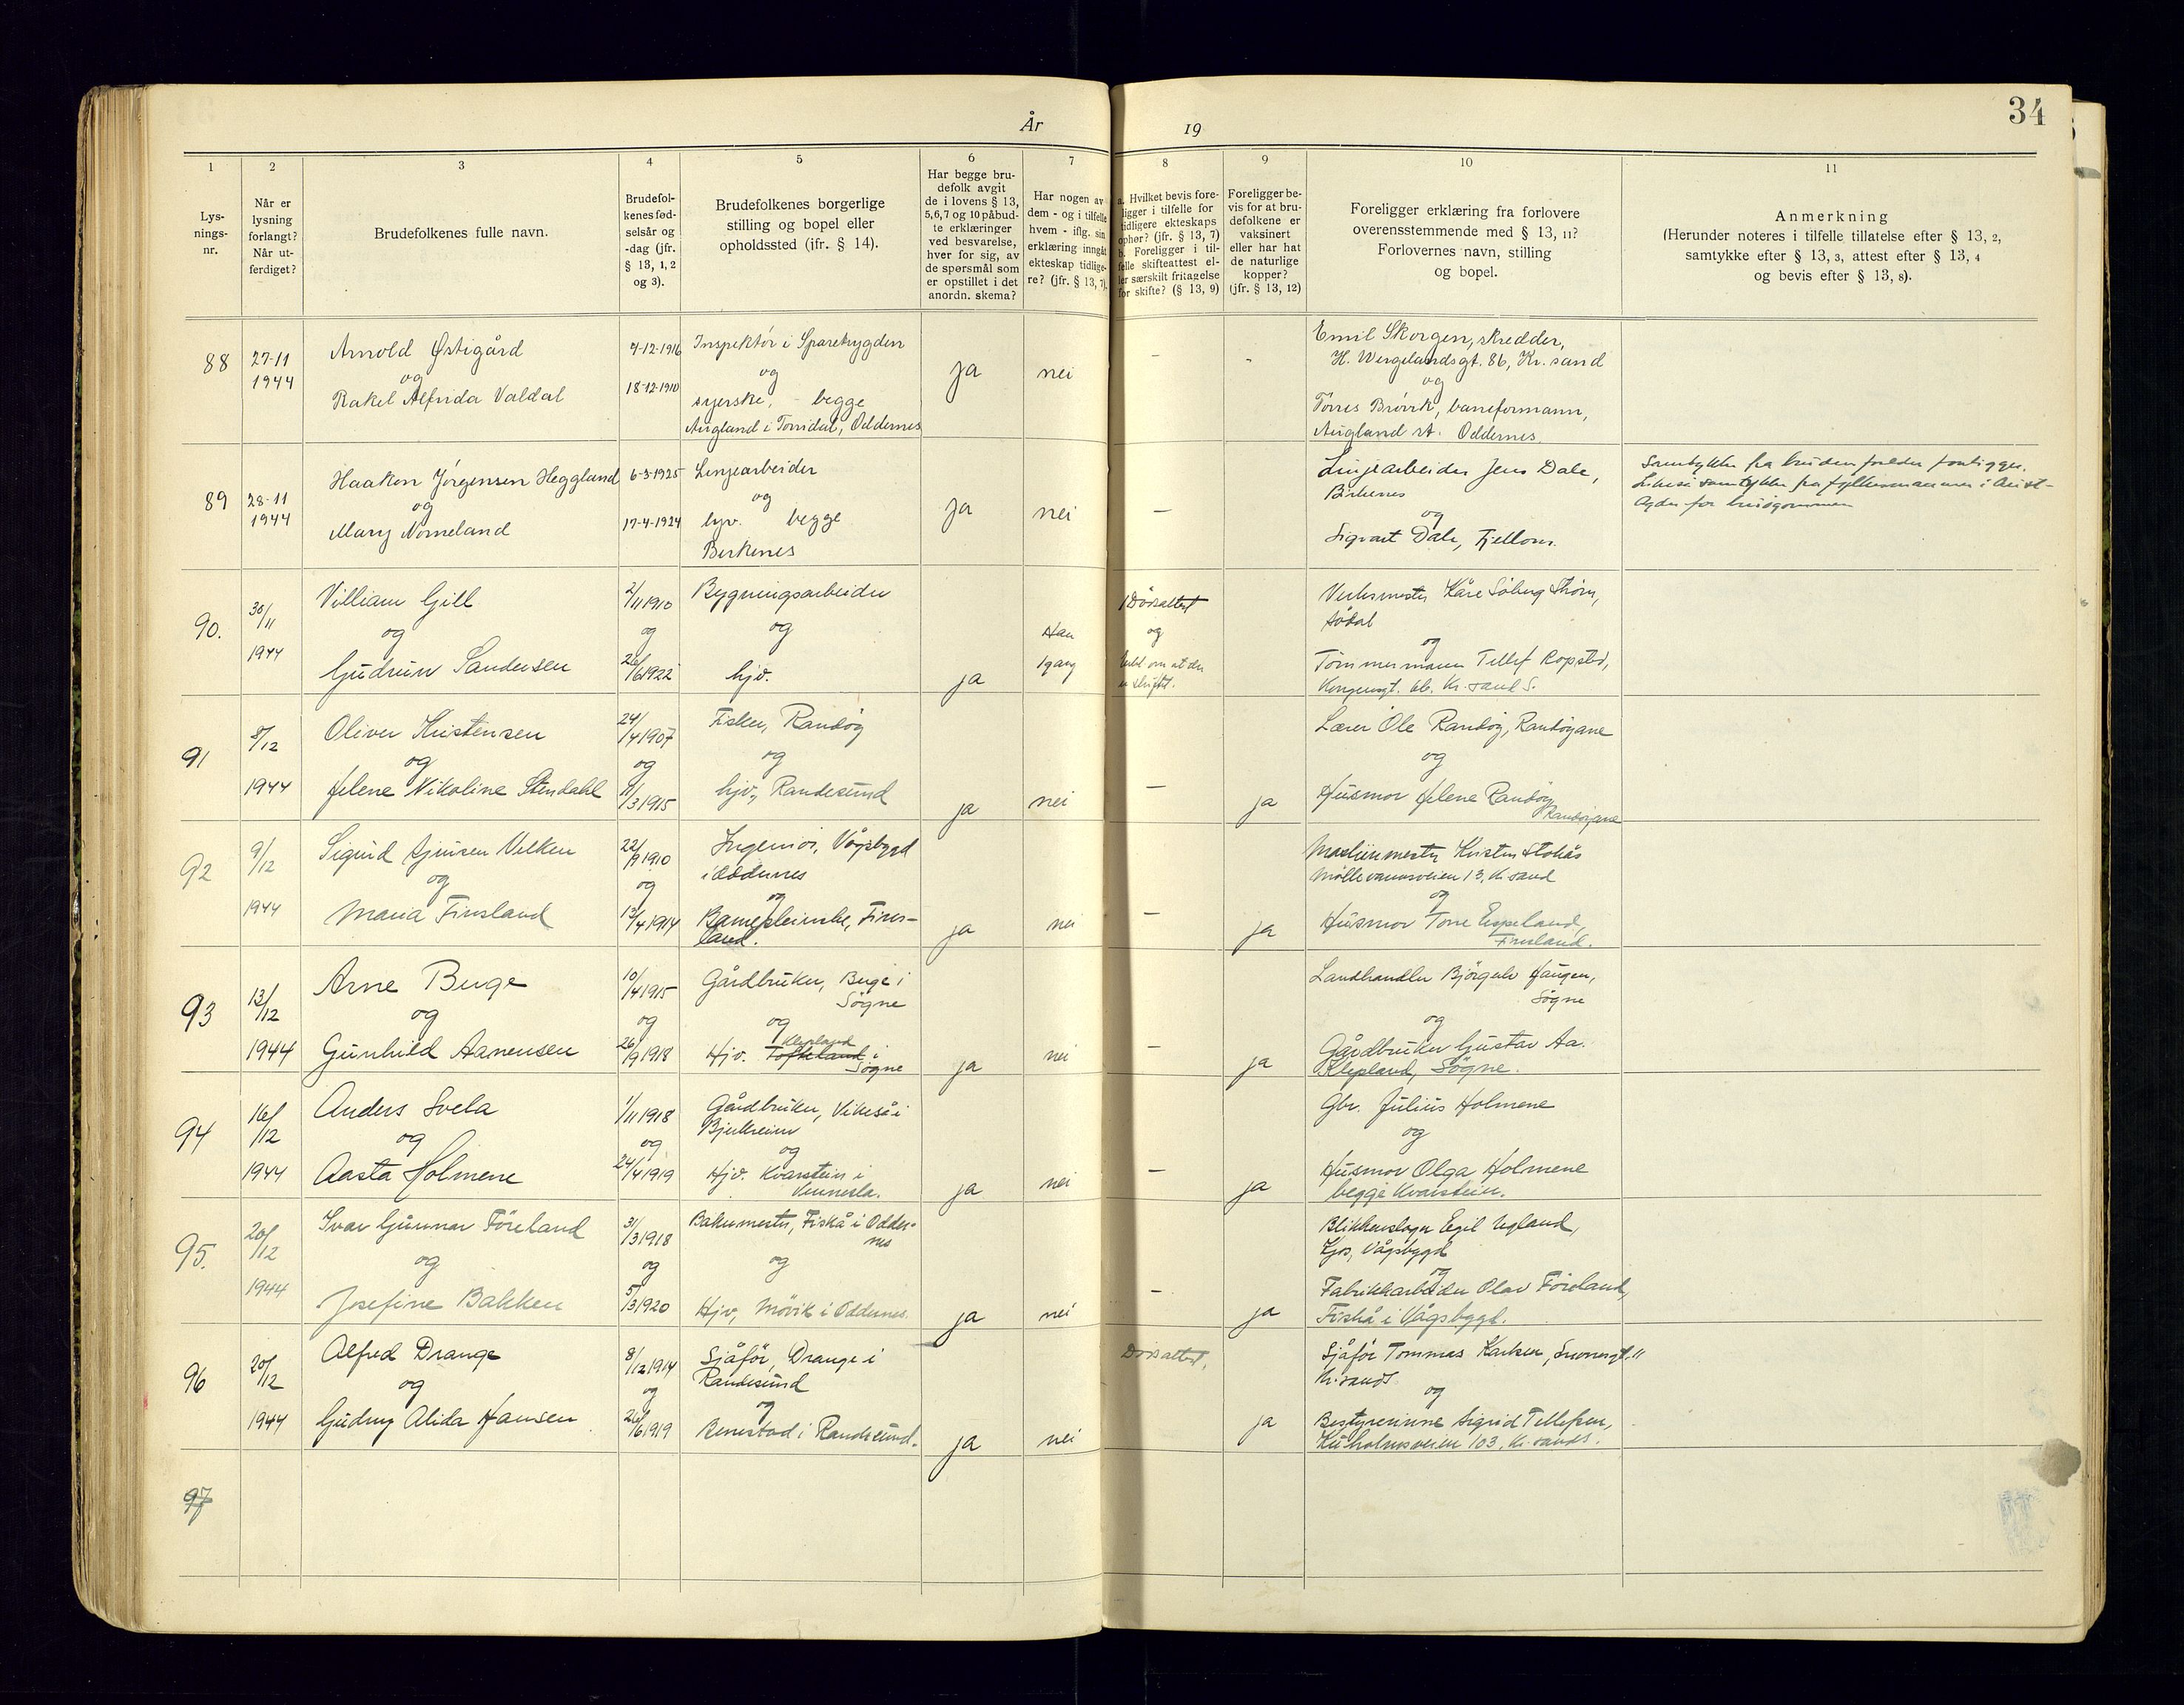 År 19
34
1
2
3
4
5
6
7
8
9
10
11
Lys-
nings-
nr.
Når er
lysning
forlangt?
Når ut-
ferdiget?
Brudefolkenes fulle navn.
Brudefol-
kenes fød-
selsår og
-dag (jfr.
§ 13, 1, 2
og 3).
Brudefolkenes borgerlige
stilling og bopel eller
opholdssted (jfr. § 14).
Har begge bru-
defolk avgit
de i lovens § 13,
5,6,7 og 10 påbud-
te erklæringer
ved besvarelse,
hver for sig, av
de spørsmål som
er opstillet i det
anordn. skema?
Har nogen av
dem - og i tilfelle
hvem - iflg. sin
erklæring inngått
ekteskap tidlige-
re? (jfr. § 13, 7).
a. Hvilket bevis fore-
ligger i tilfelle for
tidligere ekteskaps
ophør? (jfr. § 13, 7)
b. Foreligger i til-
felle skifteattest el-
ler særskilt fritagelse
for skifte? (§ 13, 9)
Foreligger be-
vis for at bru-
defolkene er
vaksinert
eller har hat
de naturlige
kopper?
(jfr. § 13, 12)
Foreligger erklæring fra forlovere
overensstemmende med § 13, 11?
Forlovernes navn, stilling
og bopel.
Anmerkning
(Herunder noteres i tilfelle tillatelse efter § 13, 2,
samtykke efter § 13, 3, attest efter § 13, 4
og bevis efter § 13, 8).
88
27-11
1944
Arnold Østigård
og
Rakel Alfrida Valdal
7-12-1916
18-12-1910
Inspektór i Sparetrygden
og
syerske, - begge
Augland i Torridal, Oddernes
ja
nei
-
-
Emil Skorgen, skredder,
H. Wergelandsgt. 86, Kr.sand
og
Torres Brøvik, baneformann,
Augland st. Oddernes.
89
28-11
1944
Haakon Jörgensen Heggland
og
Mary Nomeland
6-3-1925
17-4-1924
Linjearbeider
og
hjv. begge
Birkenes
ja
nei
-
Linjearbeider Jens Dale,
Birkenes
og
Sigvart Dale,
Samtykke fra brudens forelder foreligger.
Likeså samtykke fra fylkesmannen i Aust-
Agder for brudgommen
90.
30/11
1944
Villiam Gill
og
Gudrun Sandersen
2/11 1910
og
26/6 1922
Bygningsarbeider
og
hjv.
ja
Han
1 gang
Dödsattest
og
om at der
er skiftet.
Verksmester Kåre Söberg Thom,
Södal
og
Tömmermann Tellef Ropstad,
Kongensgt. 6b. Kr.sand S.
91
8/12
1944
Oliver Kristensen
og
Helene Nikoline Stendahl
24/4 1907
og
11/3 1915
Fisker, Randöy
og
hjv., Randesund
ja
nei
-
ja
Lærer Ole Randöy, Randöyane
og
Husmor Helene Randöy
Randöyane
92
9/12
1944
Sigurd Velken
og
Maria Finsland
22/9 1910
og
13/4 1914
Ingeniör, Vågsbygd
i Oddernes
og
Barnepleierske, Fins-
land.
ja
nei
-
ja
Maskinmester Kristen Stokås
Möllevannsveien 13, Kr.sand
og
Husmor Tone Espeland,
Finsland.
93
13/12
1944
Arne Buge
og
Gunhild Aanensen
10/4 1915
og
26/9 1918
Gårdbruker, Buge i
Sögne
og
Klepland
Hjv. Tofteland i
Sögne
ja
nei
-
ja
Landhandler Björgulv Haugen,
Sögne
og
Gårdbruker Gustav Aa.
Klepland, Sögne.
94
16/12
1944
Anders Svela
og
Aasta Holmene
1/11 1918
og
24/4 1919
Gårdbruker, Vikeså i
Bjerkreim
og
Hjv. Kvarstein i
Vennesla.
ja
nei
-
ja
Gbr. Julius Holmene
og
Husmor Olga Holmene
begge Kvarstein.
95.
20/12
1944
Ivar Gunnar Föreland
og
Josefine Bakken
31/3 1918
og
5/3 1920
Bakermester, Fiskå i Odder-
nes
og
Hjv, Mövik i Oddernes.
ja
nei
-
ja
Blikkenslager Egil Ugland,
Kjos, Vågsbygd
og
Fabrikkarbeider Olav Föreland,
Fiskå i Vågsbygd.
96
20/12
1944
Alfred Drange
og
Gudny Alida Hansen
8/12 1914
og
26/6 1919
Sjåför, Drange i
Randesund
og
Benestad i Randesund.
ja
nei
Dödsattest.
ja
Sjåför Tommas Karlsen, 11
Kr.sand S.
og
Bestyrerinne Sigrid Tellefsen,
Kuholmsveien 103, Kr.sand S.
97